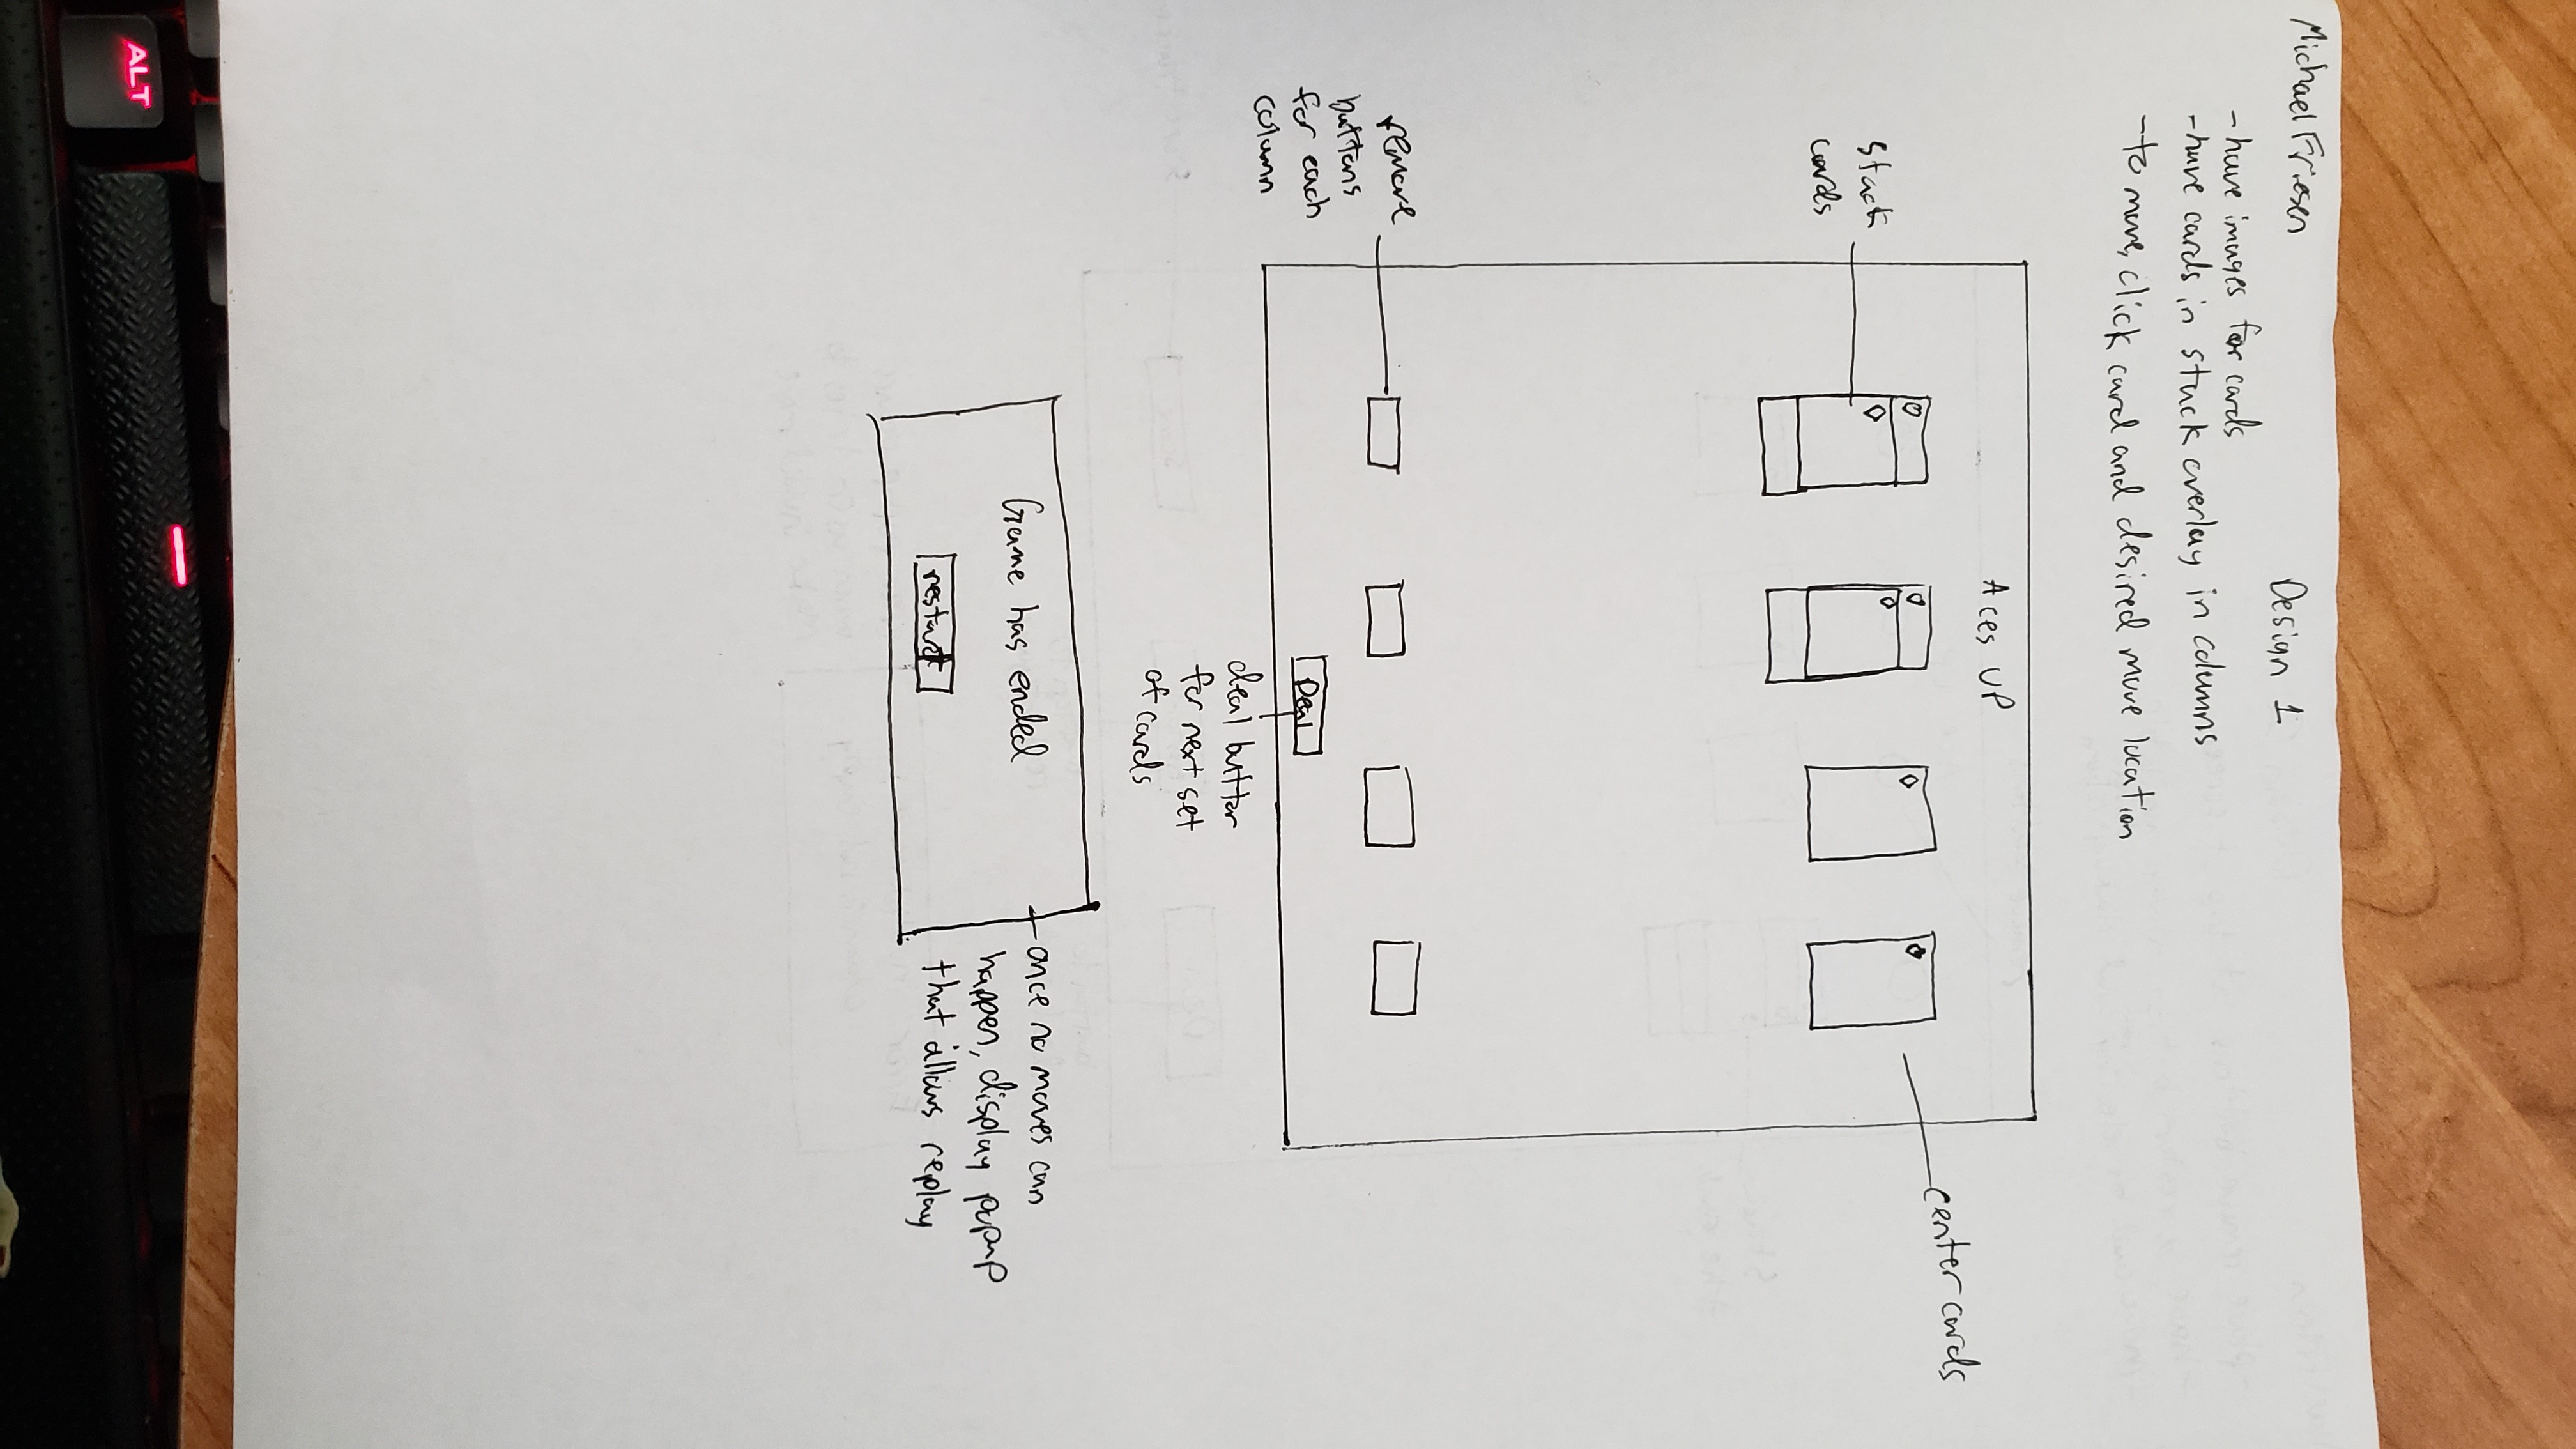 Michael Friesen
Design 1
- have images for cards
- have cards in stack overlay in columns
- to move, click card and desired move location
Aces UP
stack
cards
center cards
remove
buttons
for each
column
Deal
deal button
for next set
of cards
Game has ended
restart
once no moves can
happen, display popup
that allows replay
ALT